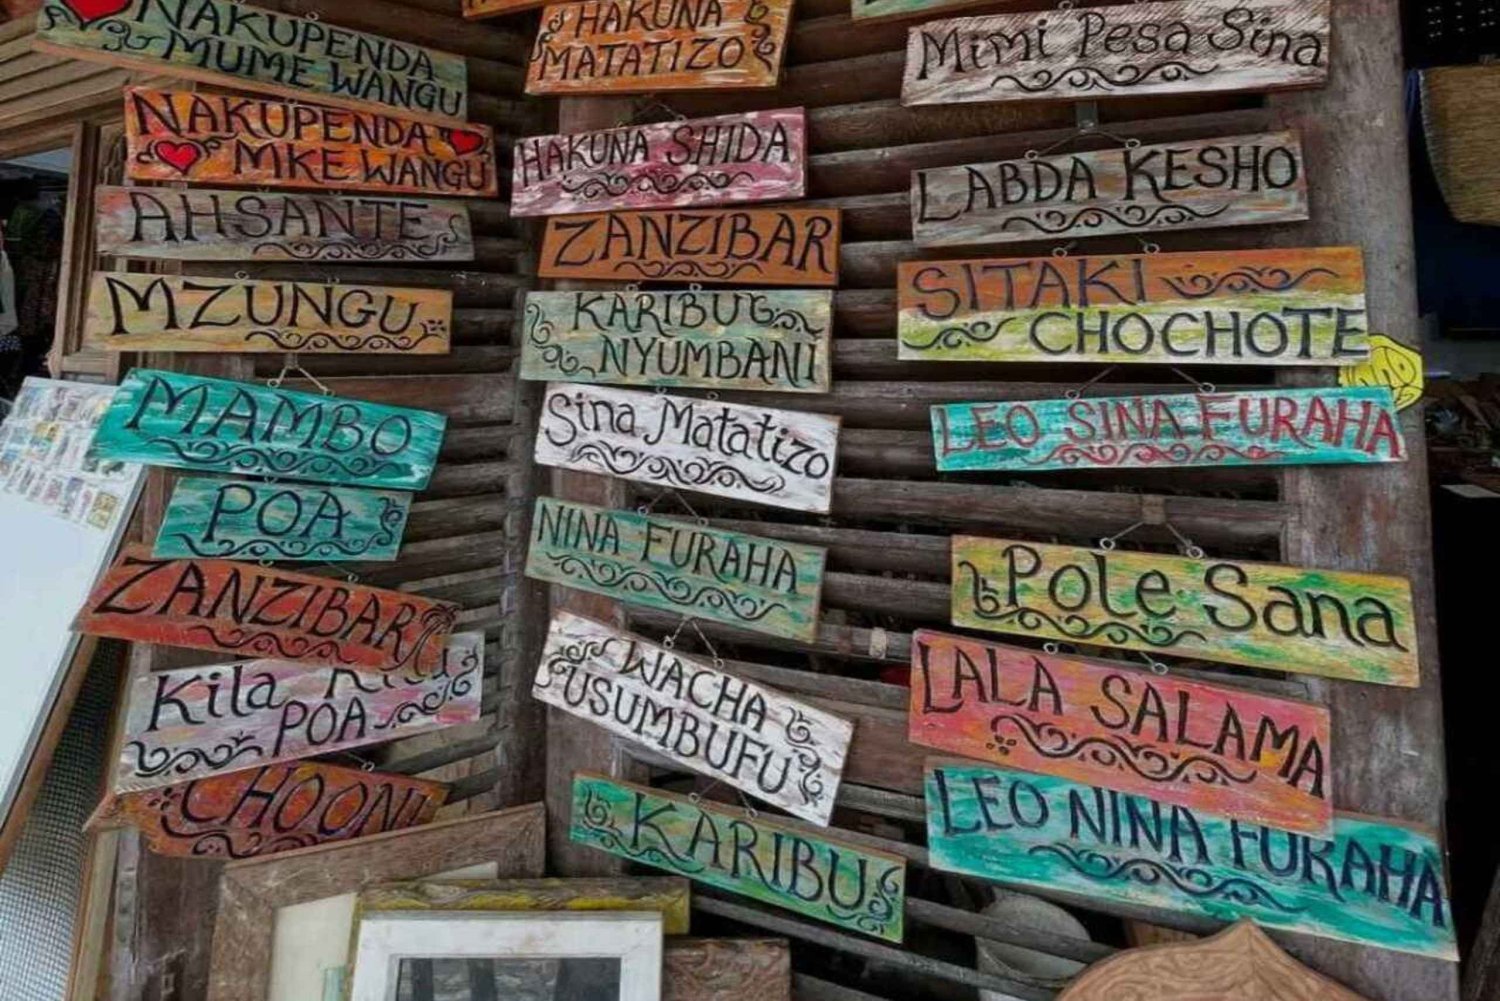 NAKUPENDA
MUME WANGU
NAKUPENDA
MKE WANGU
AHSANTE
MZUNGU
MAMBO
POA
ZANZIBAR
Kila
POA
CHOONI
HAKUNA
MATATIZO
HAKUNA SHIDA
ZANZIBAR
KARIBU
NYUMBANI
Sina Matatizo
NINA FURAHA
WACHA
USUMBUFU
KARIBU
Mimi Pesa Sina
LABDA KESHO
SITAKI
CHOCHOTE
LEO SINA FURAHA
Pole Sana
LALA SALAMA
LEO NINA FURAHA